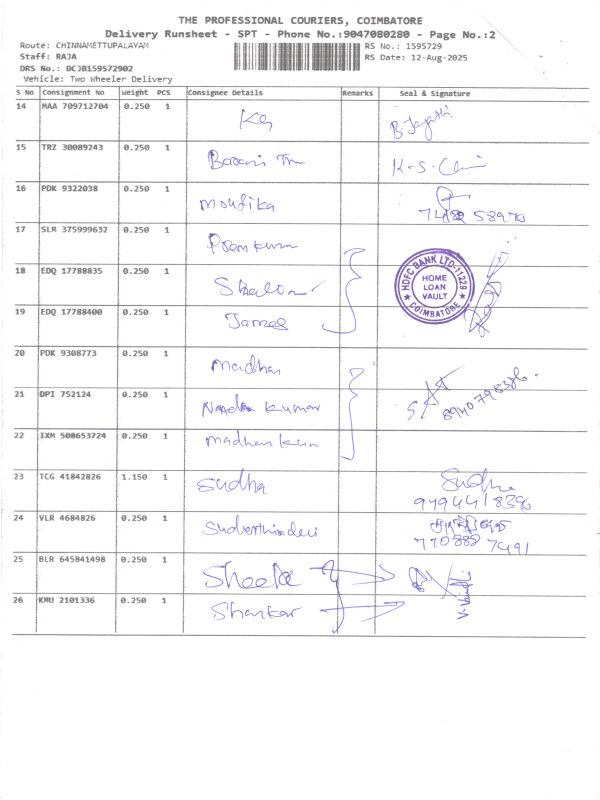 THE PROFESSIONAL COURIERS, COIMBATORE
Delivery Runsheet - SPT - Phone No.:9047080280 - Page No.:2
Route: CHINNAMETTUPALAYAM RS No.: 1595729
Staff: RAJA RS Date: 12-Aug-2025
DRS No.: DCJB159572902
Vehicle: Two Wheeler Delivery
S No Consignment No Weight PCS Consignee Details Remarks Seal & Signature
14 MAA 709712704 0.250 1
15 TRZ 30089243 0.250 1
16 PDK 9322038 0.250 1 moufika
17 SLM 375999632 0.250 1
HDFC BANK LTD-11229
HOME LOAN VAULT
COIMBATORE
18 EDQ 17788835 0.250 1
19 EDQ 17788400 0.250 1 James
20 PDK 9308773 0.250 1 madhan
21 DPI 752124 0.250 1 Kumar
22 IXM 508653724 0.250 1
23 TCG 41842826 1.150 1 Sudha Sudha
24 VLR 4684826 0.250 1
770888 7491
25 BLR 645841498 0.250 1 Sheela
26 KMU 2101336 0.250 1 Shankar